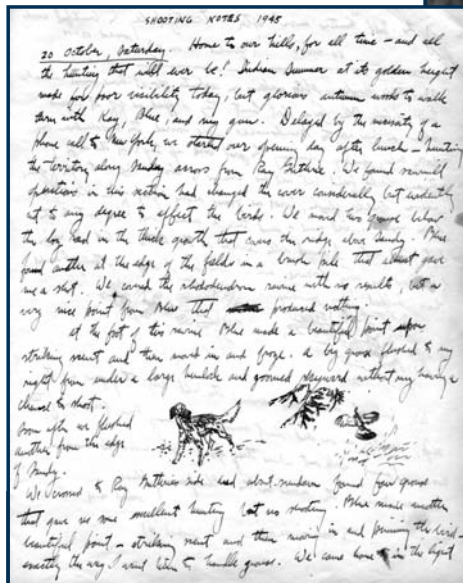 SHOOTING NOTES 1945
20 October, Saturday. Home to our hills, for all time – and all
the hunting that will ever be! Indian Summer at its golden height
made for poor visibility today, but glorious autumn woods to walk
them with Kay, Blue, and my gun. Delayed by the necessity of a
phone call to New York, we started our opening day after lunch – hunting
the territory along Sandy across from Ray Guthrie. We found sawmill
operations in this section had changed the cover considerably but evidently
not to any degree to affect the birds. We moved two grouse below
the log road in the thick growth that covers the ridge above Sandy. Blue
found another at the edge of the fields in a brush pile that almost gave
me a shot. We covered the rhododendron ravine with no results, but a
very nice point from Blue that produced nothing.
At the foot of this ravine Blue made a beautiful point upon
striking scent and then moved in and froze. A big grouse flushed to my
right from under a large hemlock and zoomed skyward without my having a
chance to shoot.
Soon after we flushed
another from the edge
of Sandy.
We crossed to Ray Guthries side and about sundown found four grouse
that gave us some excellent hunting but no shooting. Blue made another
beautiful point – striking scent and then moving in and pinning the bird –
exactly the way I want him to handle grouse. We came home in the light